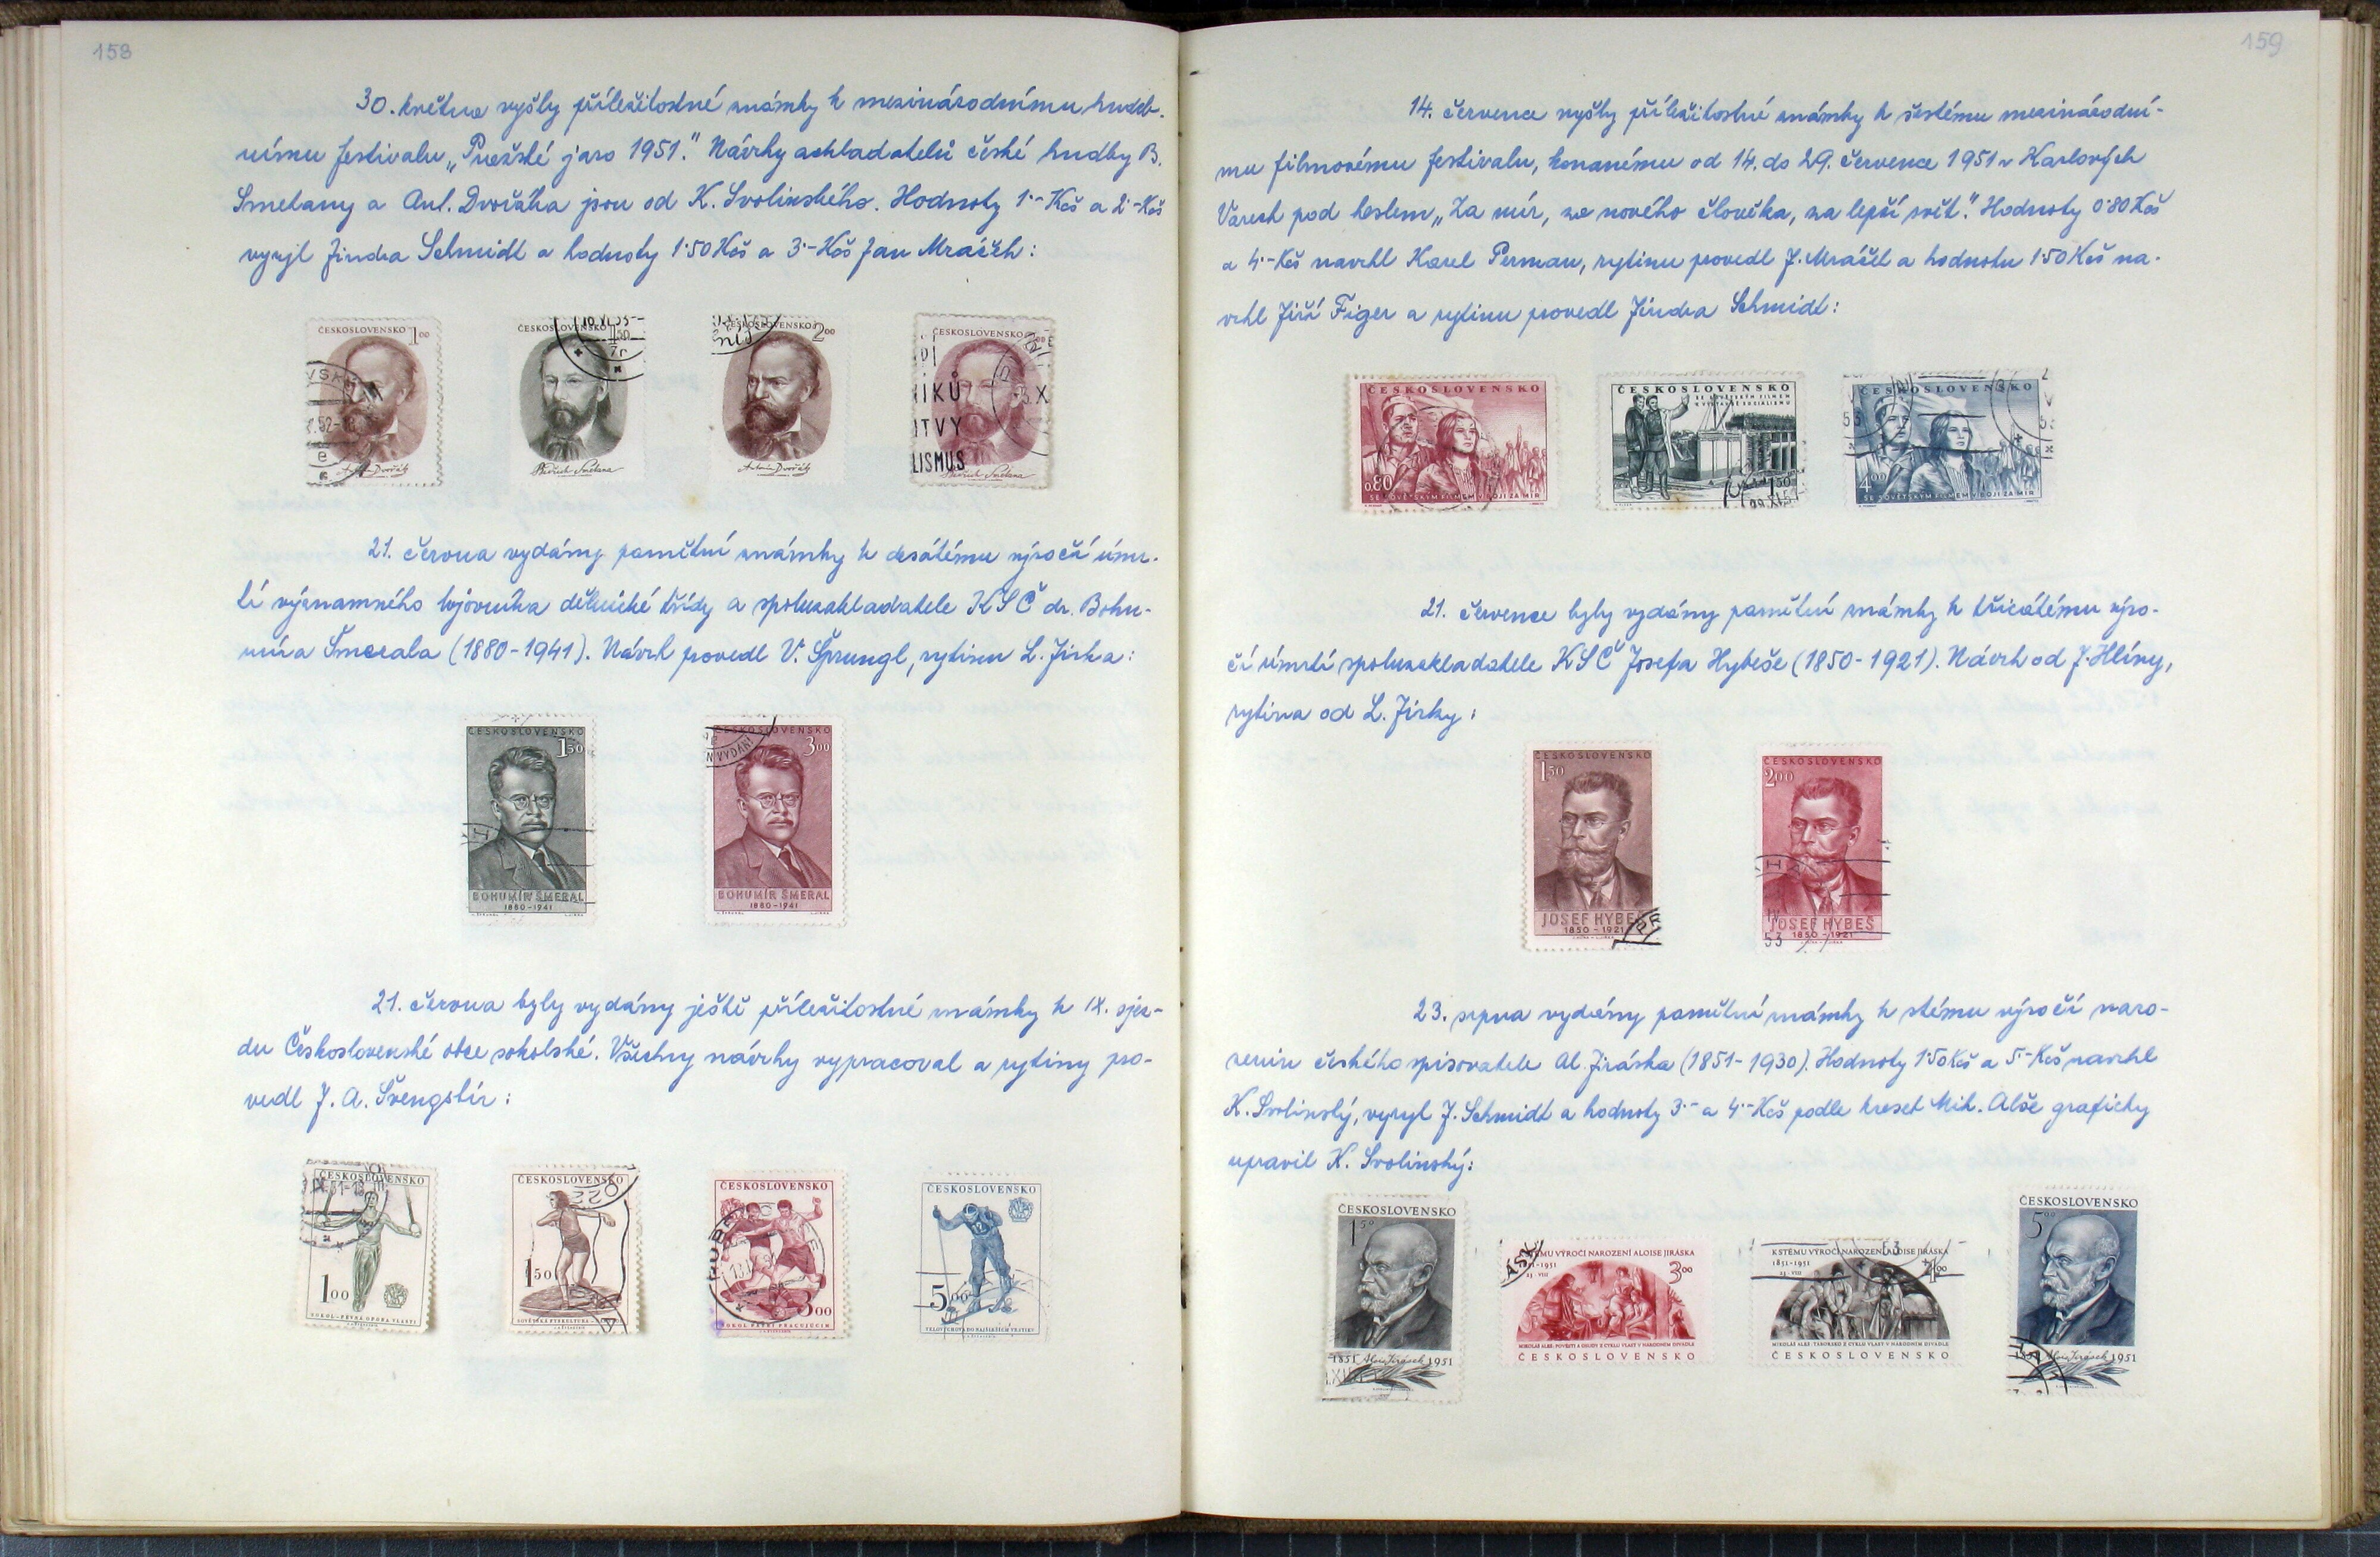 158
30. května vyšly příležitostné známky k mezinárodnímu hudeb-
nímu festivalu „Pražské jaro 1951.“ Návrhy zakladatelů české hudby B.
Smetany a Ant. Dvořáka jsou od K. Svolinského. Hodnoty 1·- Kčs a 2·- Kčs
vyryl Jindra Schmidt a hodnoty 1·50 Kčs a 3·- Kčs Jan Mráček:
ČESKOSLOVENSKO 1 00
Antonín Dvořák
ČESKOSLOVENSKO 1 50
Bedřich Smetana
ČESKOSLOVENSKO 2 00
Antonín Dvořák
ČESKOSLOVENSKO
Bedřich Smetana
21. června vydány pamětní známky k desátému výročí úmr-
tí významného bojovníka dělnické třídy a spoluzakladatele KSČ dr. Bohu-
míra Šmerala (1880-1941). Návrh provedl V. Šprungl, rytinu L. Jirka:
ČESKOSLOVENSKO
1 50
BOHUMÍR ŠMERAL
1880-1941
ČESKOSLOVENSKO
3 00
BOHUMÍR ŠMERAL
1880-1941
21. června byly vydány ještě příležitostné známky k IX. sjez-
du Československé obce sokolské. Všechny návrhy vypracoval a rytiny pro-
vedl J. A. Švengsbír:
ČESKOSLOVENSKO
1 00
SOKOL-PEVNÁ OPORA VLASTI
ČESKOSLOVENSKO
1 50
ČESKOSLOVENSKO
3 00
SOKOL PATŘÍ PRACUJÍCÍM
ČESKOSLOVENSKO
5 00
TĚLOVÝCHOVA DO NEJŠIRŠÍCH VRSTEV
159
14. července vyšly příležitostné známky k šestému mezinárodní-
mu filmovému festivalu, konanému od 14. do 29. července 1951 v Karlových
Varech pod heslem „Za mír, za nového člověka, za lepší svět.“ Hodnoty 0·80 Kčs
a 4·- Kčs navrhl Karel Perman, rytinu provedl J. Mráček a hodnotu 1·50 Kčs na-
vrhl Jiří Figer a rytinu provedl Jindra Schmidt:
ČESKOSLOVENSKO
0.80
SE SOVĚTSKÝM FILMEM V BOJI ZA MÍR
ČESKOSLOVENSKO
SE SOVĚTSKÝM FILMEM
K VÝSTAVBĚ SOCIALISMU
1 50
ČESKOSLOVENSKO
4 00
SE SOVĚTSKÝM FILMEM V BOJI ZA MÍR
21. července byly vydány pamětní známky k třicátému výro-
čí úmrtí spoluzakladatele KSČ Josefa Hybeše (1850-1921). Návrh od J. Hlíny,
rytina od L. Jirky:
ČESKOSLOVENSKO
1 50
JOSEF HYBEŠ
1850-1921
ČESKOSLOVENSKO
2 00
JOSEF HYBEŠ
1850-1921
23. srpna vydány pamětní známky k stému výročí naro-
zenin českého spisovatele Al. Jiráska (1851-1930). Hodnoty 1·50 Kčs a 5·- Kčs navrhl
K. Svolinský, vyryl J. Schmidt a hodnoty 3·- a 4·- Kčs podle kreseb Mik. Alše graficky
upravil K. Svolinský:
ČESKOSLOVENSKO
1 50
1851 Alois Jirásek 1951
K STÉMU VÝROČÍ NAROZENÍ ALOISE JIRÁSKA
1851-1951
23·VIII
3 00
MIKOLÁŠ ALEŠ: POVĚSTI A OSUDY Z CYKLU VLAST V NÁRODNÍM DIVADLE
ČESKOSLOVENSKO
K STÉMU VÝROČÍ NAROZENÍ ALOISE JIRÁSKA
1851-1951
23·VIII
4 00
MIKOLÁŠ ALEŠ: TÁBORSKO Z CYKLU VLAST V NÁRODNÍM DIVADLE
ČESKOSLOVENSKO
ČESKOSLOVENSKO
5 00
1851 Alois Jirásek 1951